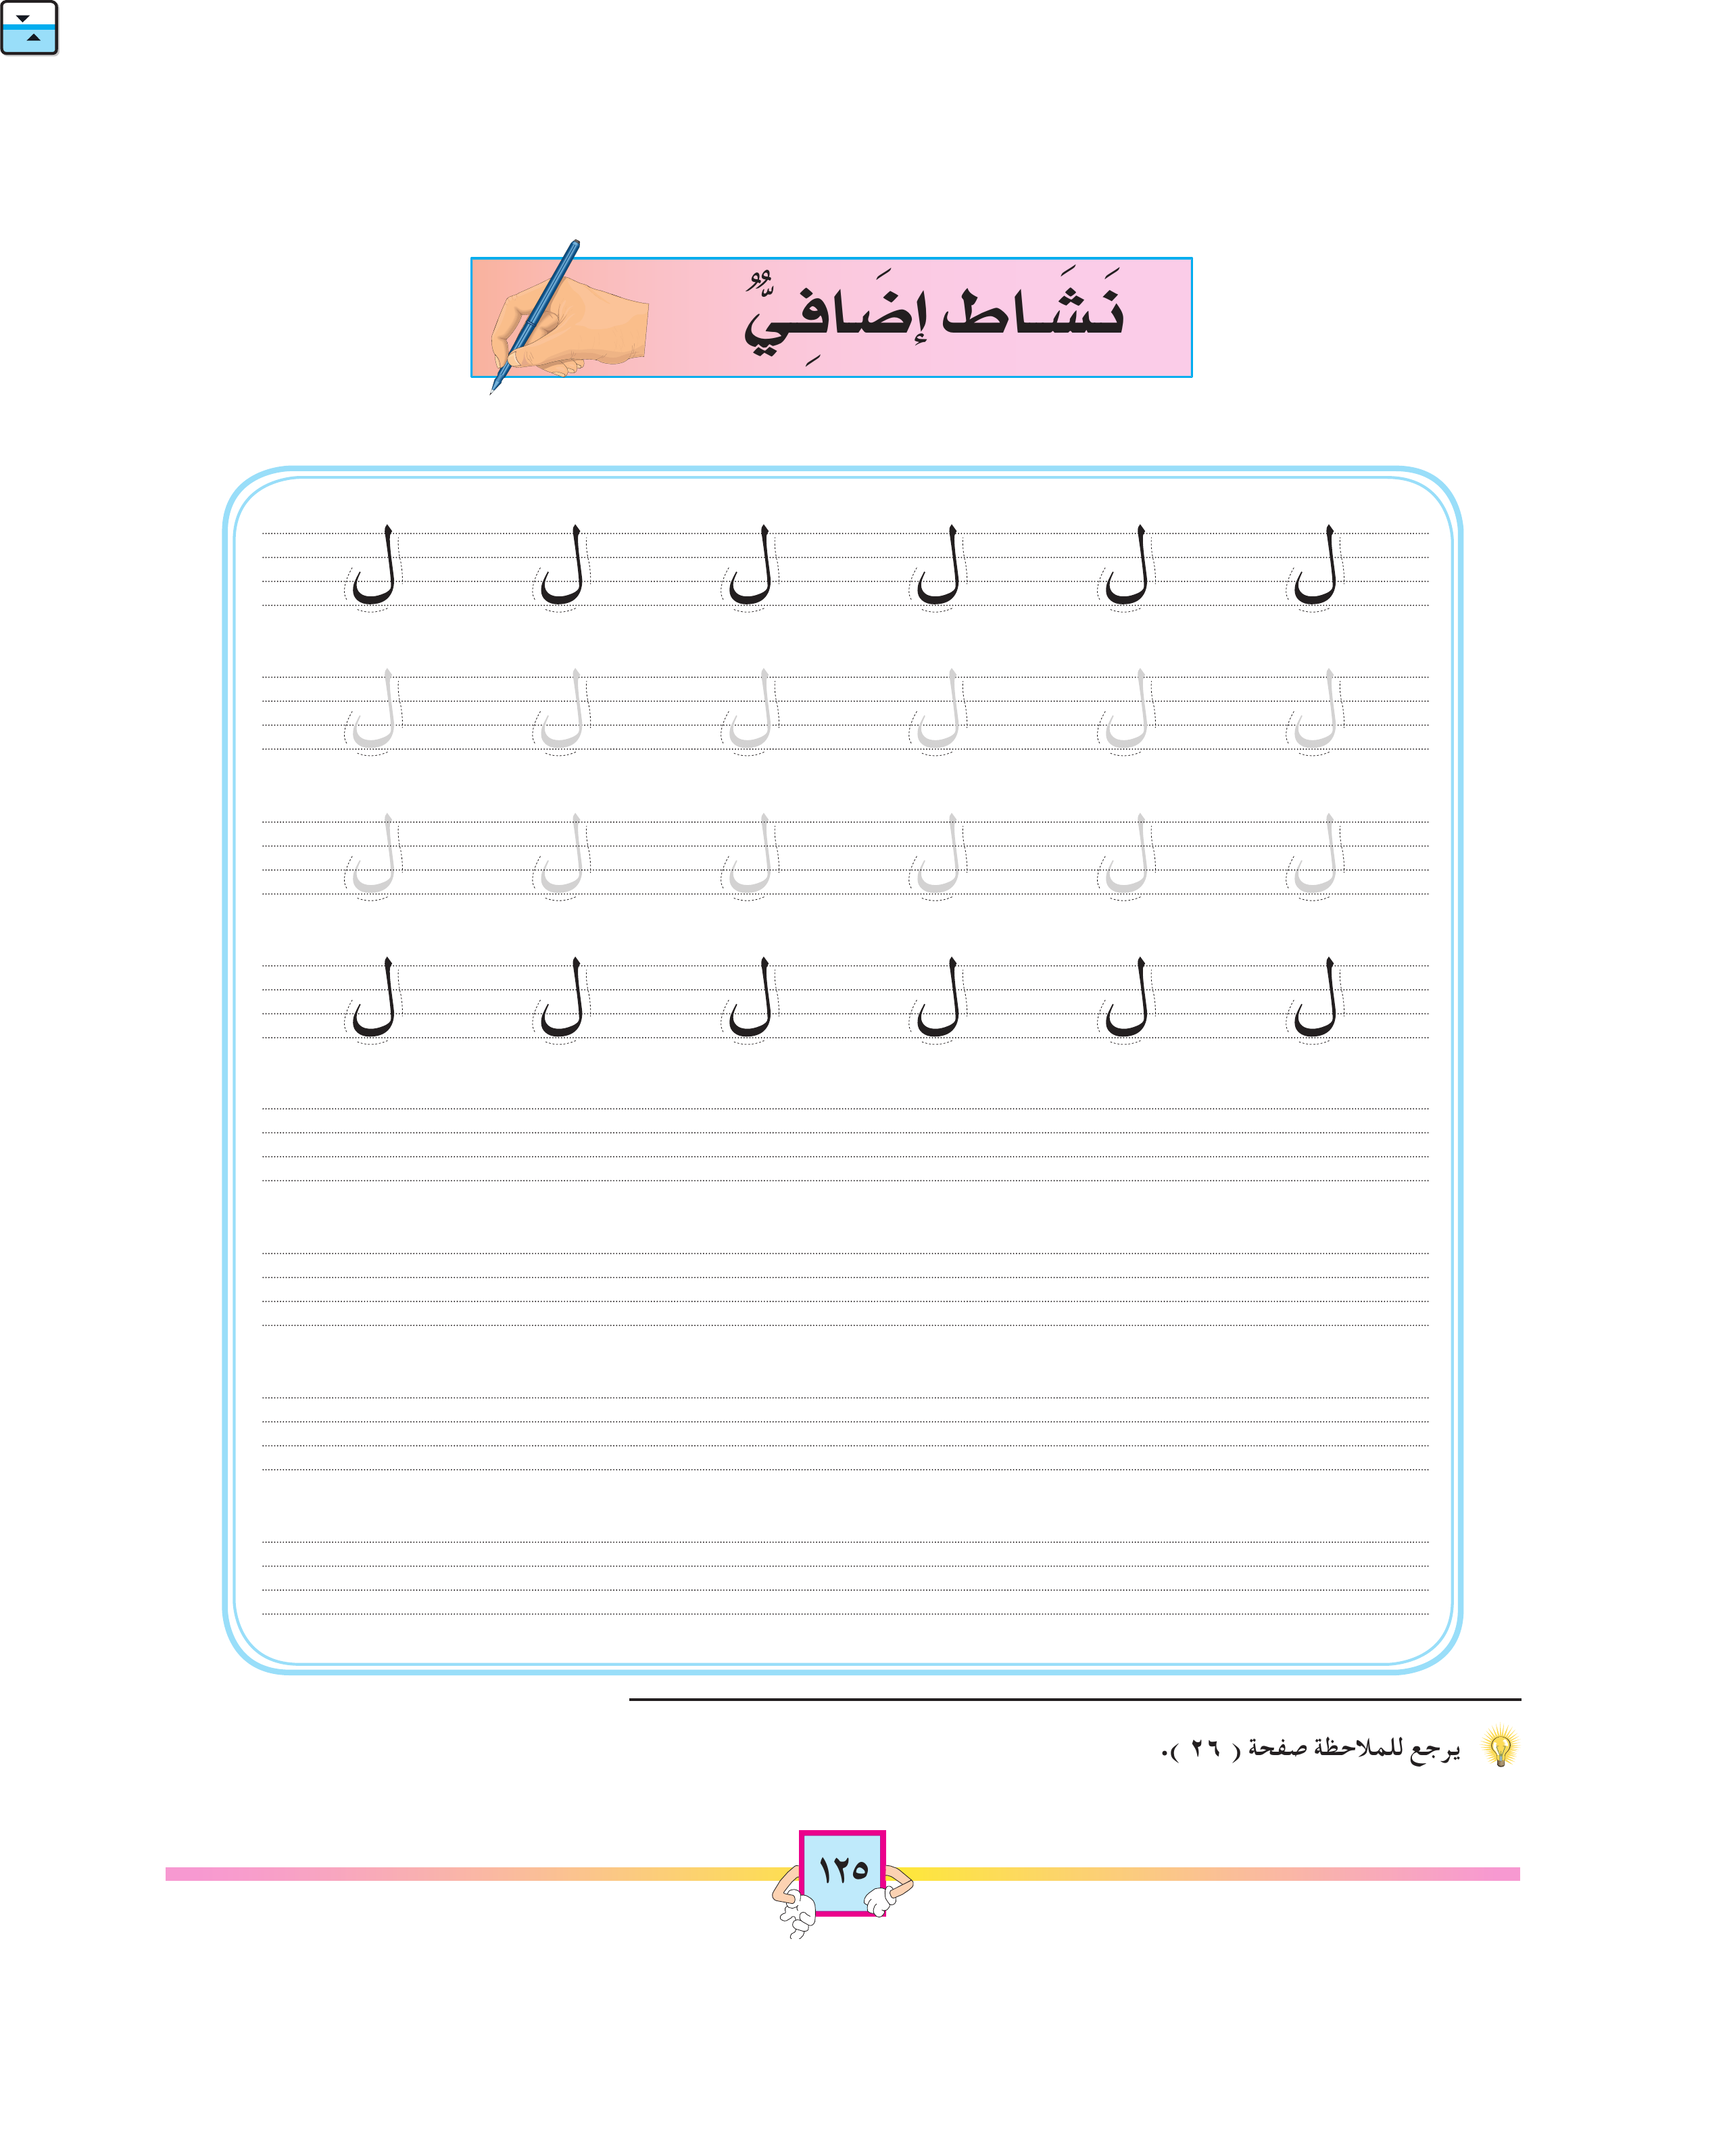 نَشَاط إضَافِيٌّ
ل ل ل ل ل ل
ل ل ل ل ل ل
ل ل ل ل ل ل
ل ل ل ل ل ل
يرجع للملاحظة صفحة ( ٢٦ ).
١٢٥